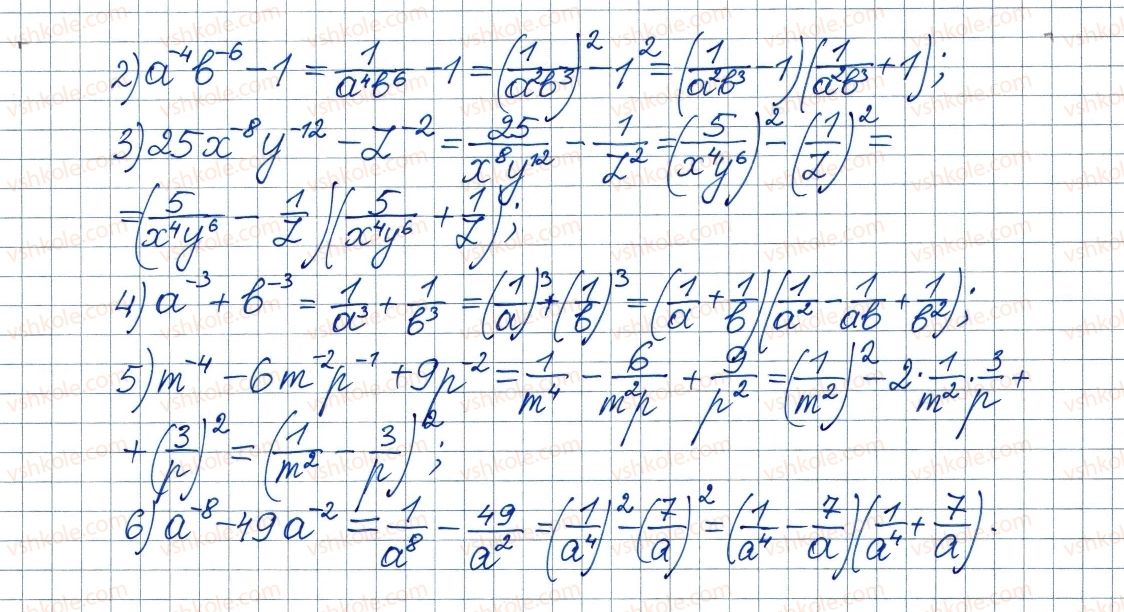 2) a⁻⁴b⁻⁶ - 1 = 1/(a⁴b⁶) - 1 = (1/(a²b³))² - 1² = (1/(a²b³) - 1)(1/(a²b³) + 1);
3) 25x⁻⁸y⁻¹² - z⁻² = 25/(x⁸y¹²) - 1/z² = (5/(x⁴y⁶))² - (1/z)² =
= (5/(x⁴y⁶) - 1/z)(5/(x⁴y⁶) + 1/z);
4) a⁻³ + b⁻³ = 1/a³ + 1/b³ = (1/a)³ + (1/b)³ = (1/a + 1/b)(1/a² - 1/(ab) + 1/b²);
5) m⁻⁴ - 6m⁻²p⁻¹ + 9p⁻² = 1/m⁴ - 6/(m²p) + 9/p² = (1/m²)² - 2·1/m²·3/p +
+ (3/p)² = (1/m² - 3/p)²;
6) a⁻⁸ - 49a⁻² = 1/a⁸ - 49/a² = (1/a⁴)² - (7/a)² = (1/a⁴ - 7/a)(1/a⁴ + 7/a).